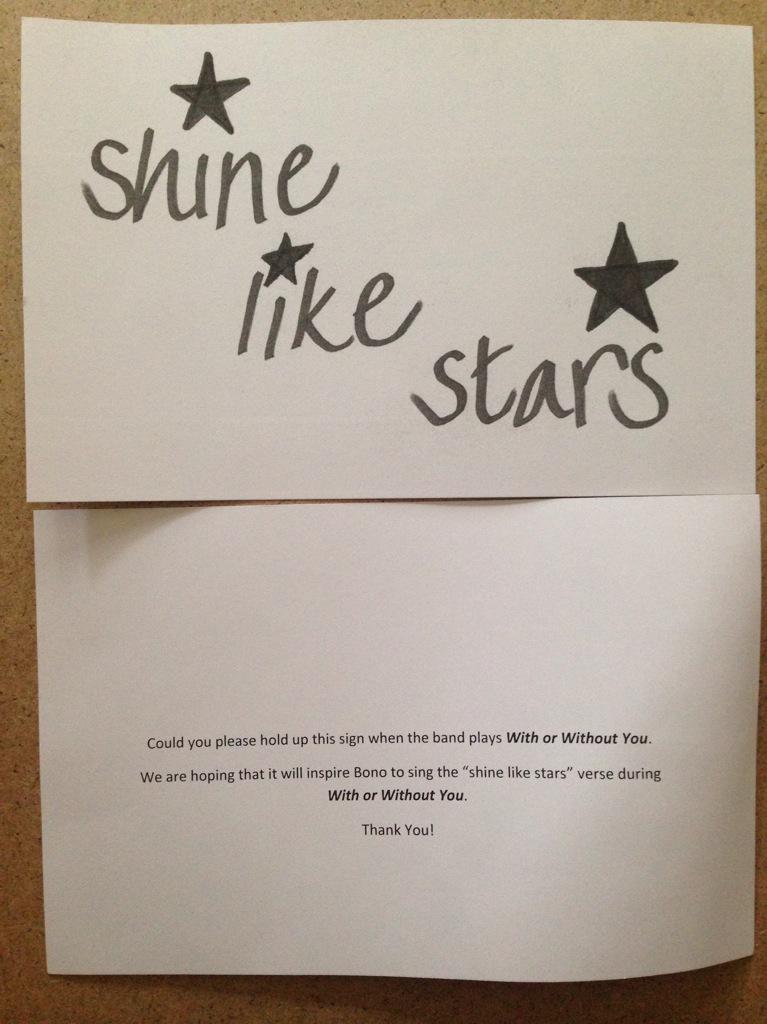 shine
like
stars
Could you please hold up this sign when the band plays With or Without You.
We are hoping that it will inspire Bono to sing the “shine like stars” verse during
With or Without You.
Thank You!